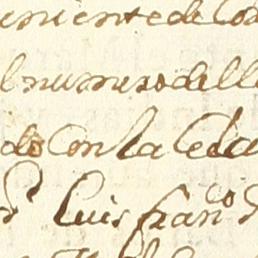 miente de Co
l numero dell
do Con la Cedu
r Luis franco